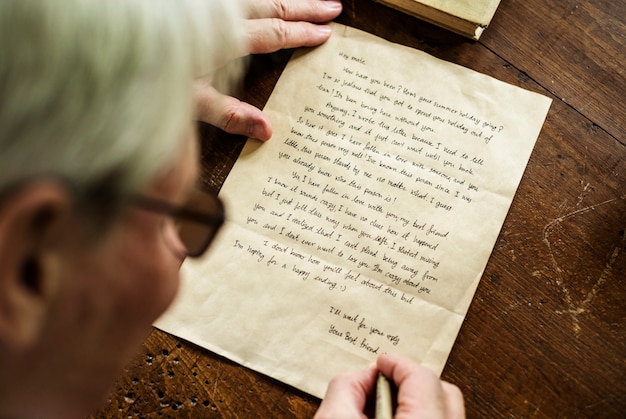 Hey mate,
How have you been? Hows your summer holiday going?
I'm so jealous that you got to spend your holiday out of
town! Its been boring here without you.
Anyway, I wrote this letter because I need to tell
you something and it just can't wait until you back
So here it goes I have fallen in love with someone and you
know this person very well! I've known this person since I was
little, this person stands by me no matter what. I guess
you already know who this person is!
Yes I have fallen in love with you, my best friend
I know it sounds crazy, I have no clue how it happened
but I just felt this way when you left. I started missing
you and I realised that I can't stand being away from
you and I don't ever want to lose you. I'm crazy about you
I don't know how you'll feel about this but
I'm hoping for a happy ending :)
I'll wait for your reply
Your Best friend